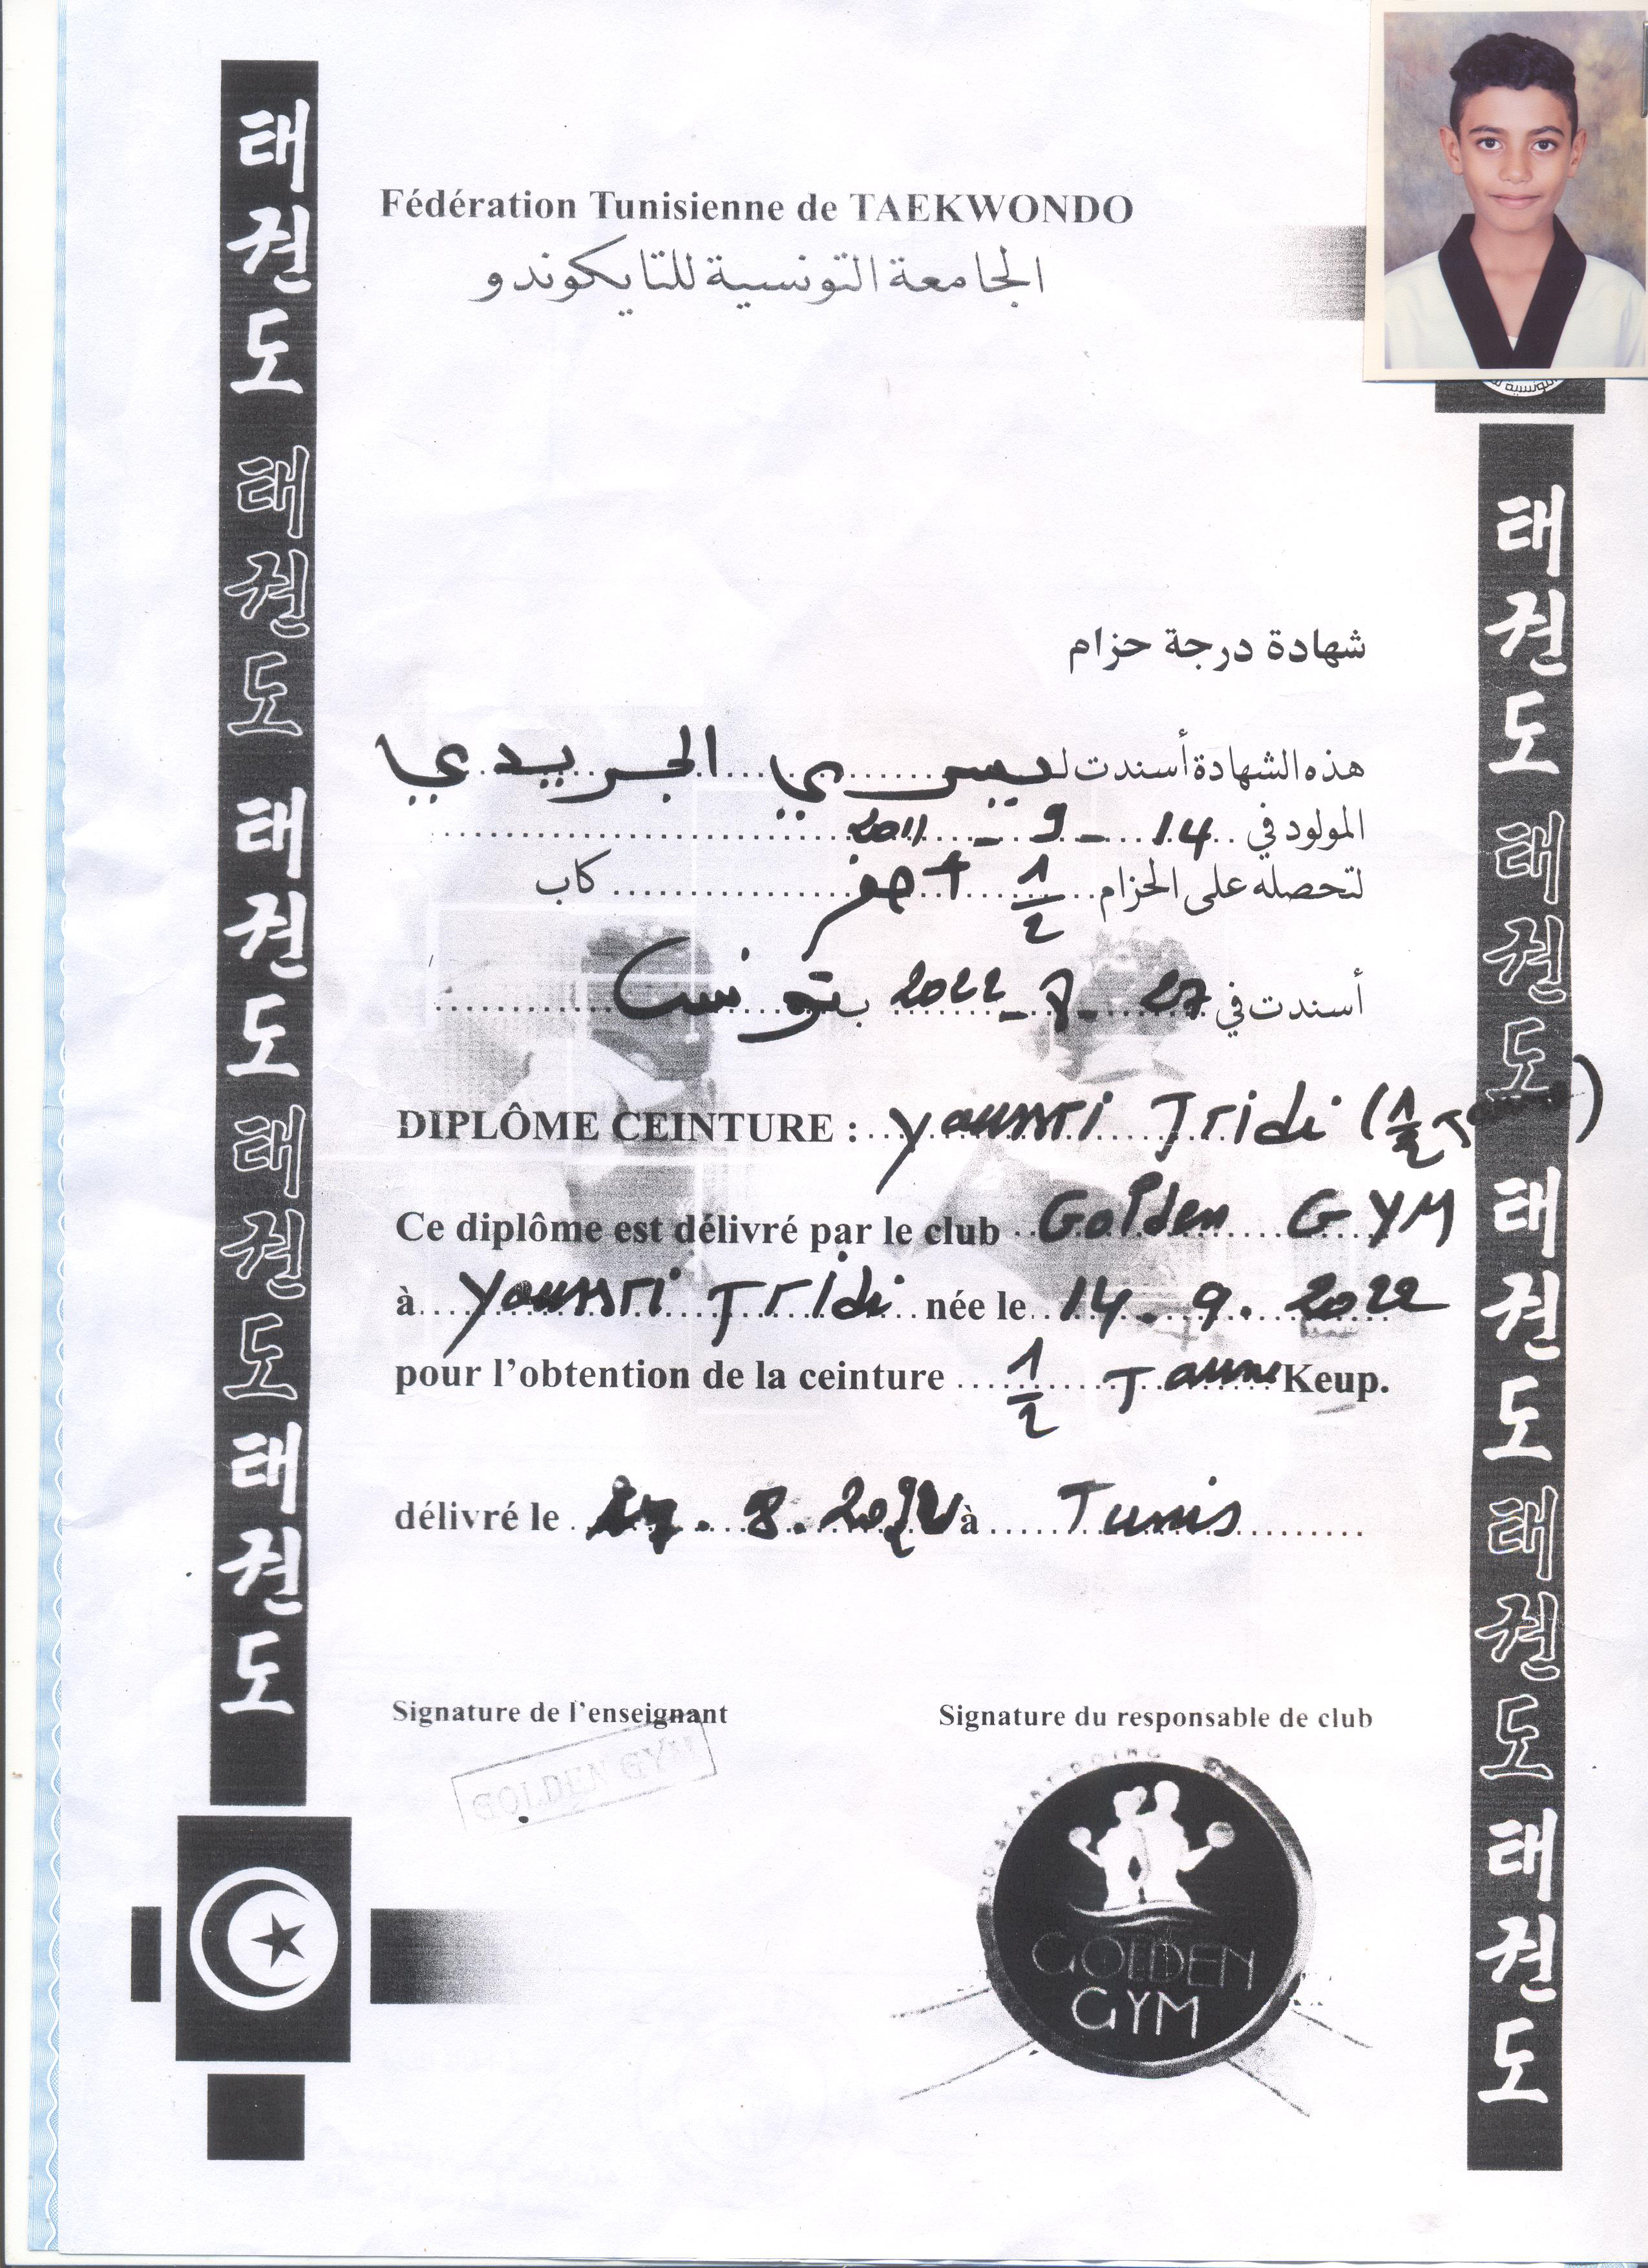 Fédération Tunisienne de TAEKWONDO
الجامعة التونسية للتايكوندو
شهادة درجة حزام
هذه الشهادة أسندت ليسري الجريدي
المولود في 14 - 9 - 2011
لتحصله على الحزام 1/2 أصفر كاب
أسندت في 27 - 8 - 2022 بتونس
DIPLÔME CEINTURE : Youssri Jridi (1/2 Jaune)
Ce diplôme est délivré par le club Golden GYM
à Youssri Jridi née le 14. 9. 2022
pour l'obtention de la ceinture 1/2 Jaune Keup.
délivré le 27. 8. 2022 à Tunis
Signature de l'enseignant
Signature du responsable de club
GOLDEN GYM
GOLDEN
GYM
태권도 태권도 태권도 태권도 태권도
태권도 태권도 태권도 태권도 태권도